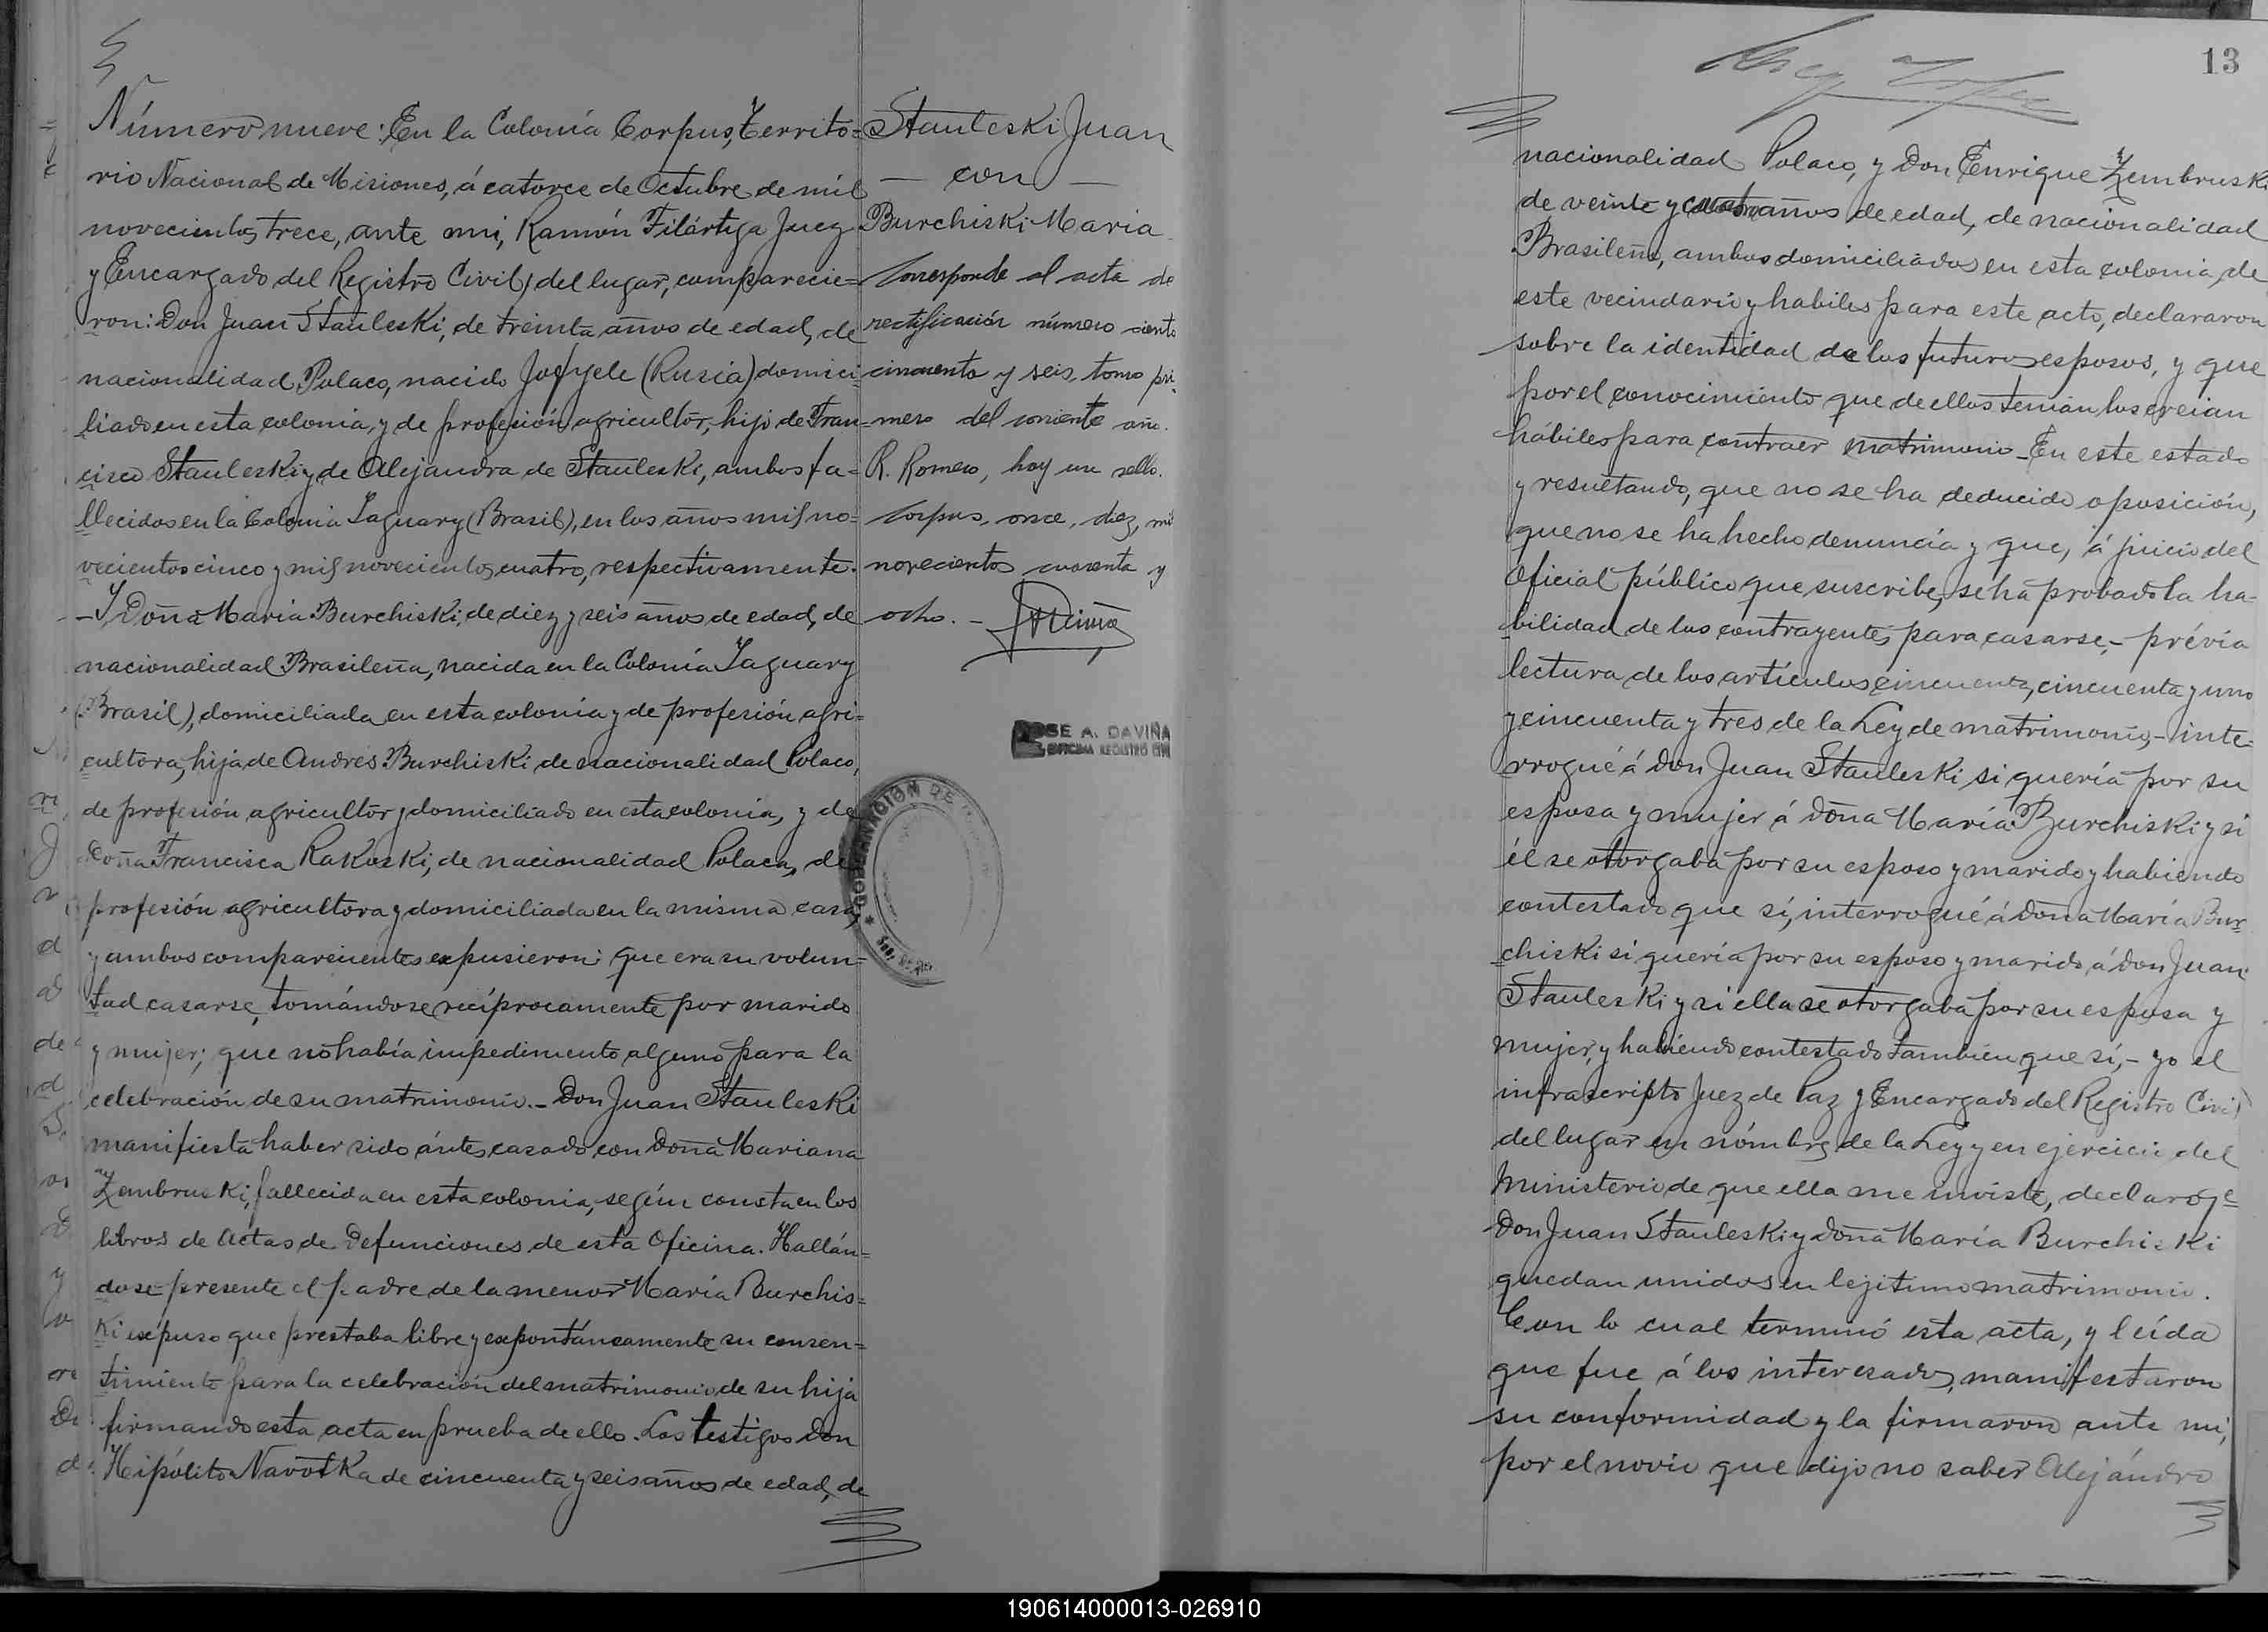 Número nueve: En la Colonia Corpus, Territo=
rio Nacional de Misiones, á catorce de Octubre de mil
novecientos trece, ante mi, Ramón Filártiga Juez
y Encargado del Registro Civil del lugar, comparecie=
ron: Don Juan Stauleski, de treinta años de edad, de
nacionalidad Polaco, nacido (Rusia) domici=
liado en esta colonia, y de profesión agricultor, hijo de Fran=
cisco Stauleski y de Alejandra de Stauleski, ambos fa=
llecidos en la Colonia Jaguary (Brasil), en los años mil no=
vecientos cinco y mil novecientos cuatro, respectivamente.
- Y Doña María Burchiski, de diez y seis años de edad, de
nacionalidad Brasileña, nacida en la Colonia Jaguary
(Brasil), domiciliada en esta colonia y de profesión agri=
cultora, hija de Andres Burchiski de nacionalidad Polaco,
de profesión agricultor y domiciliado en esta colonia, y de
Doña Francisca Rakoski, de nacionalidad Polaca, de
profesión agricultora y domiciliada en la misma casa,
y ambos comparecientes expusieron: que era su volun=
tad casarse, tomándose recíprocamente por marido
y mujer; que no había impedimento alguno para la
celebración de su matrimonio. - Don Juan Stauleski
manifiesta haber sido ántes casado con Doña Mariana
Zembruski, fallecida en esta colonia, según consta en los
libros de Actas de Defunciones de esta Oficina. Hallán=
dose presente el padre de la menor María Burchis=
ki expuso que prestaba libre y expontáneamente su consen=
timiento para la celebración del matrimonio de su hija
firmando esta acta en prueba de ello. Los testigos Don
Hipólito Navotka de cincuenta y seis años de edad, de
Stauleski Juan
— con —
Burchiski Maria
Corresponde al acta de
rectificación número ciento
cincuenta y seis, tomo pri-
mero del corriente año.
R. Romero, hay un sello.
Corpus, once, diez, mil
novecientos cuarenta y
ocho. -
JOSE A. DAVIÑA
OFICINA REGISTRO CIVIL
GOBERNACION DE
13
nacionalidad Polaco, y Don Enrique Zembruski
de veinte y cuatro años de edad, de nacionalidad
Brasileño, ambos domiciliados en esta colonia, de
este vecindario y habiles para este acto, declararon
sobre la identidad de los futuros esposos, y que
por el conocimiento que de ellos tenian los creian
hábiles para contraer matrimonio - En este estado
y resultando, que no se ha deducido oposición,
que no se ha hecho denuncia y que, á juicio del
Oficial público que suscribe, se ha probado la ha-
bilidad de los contrayentes para casarse, - prévia
lectura de los artículos cincuenta, cincuenta y uno
y cincuenta y tres de la Ley de matrimonio, - inte-
rrogué á Don Juan Stauleski si quería por su
esposa y mujer á Doña María Burchiski y si
él se otorgaba por su esposo y marido y habiendo
contestado que sí, interrogué á Doña María Bur=
chiski si quería por su esposo y marido á Don Juan
Stauleski y si ella se otorgaba por su esposa y
mujer, y habiendo contestado tambien que sí, - yo el
infrascripto Juez de Paz y Encargado del Registro Civil
del lugar en nómbre de la Ley y en ejercicio del
Ministerio de que ella me inviste, declaro qe
Don Juan Stauleski y Doña María Burchiski
quedan unidos en lejitimo matrimonio.
Con lo cual terminó esta acta, y leída
que fue á los interesados, manifestaron
su conformidad y la firmaron ante mi,
por el novio que dijo no saber Alejándro
190614000013-026910